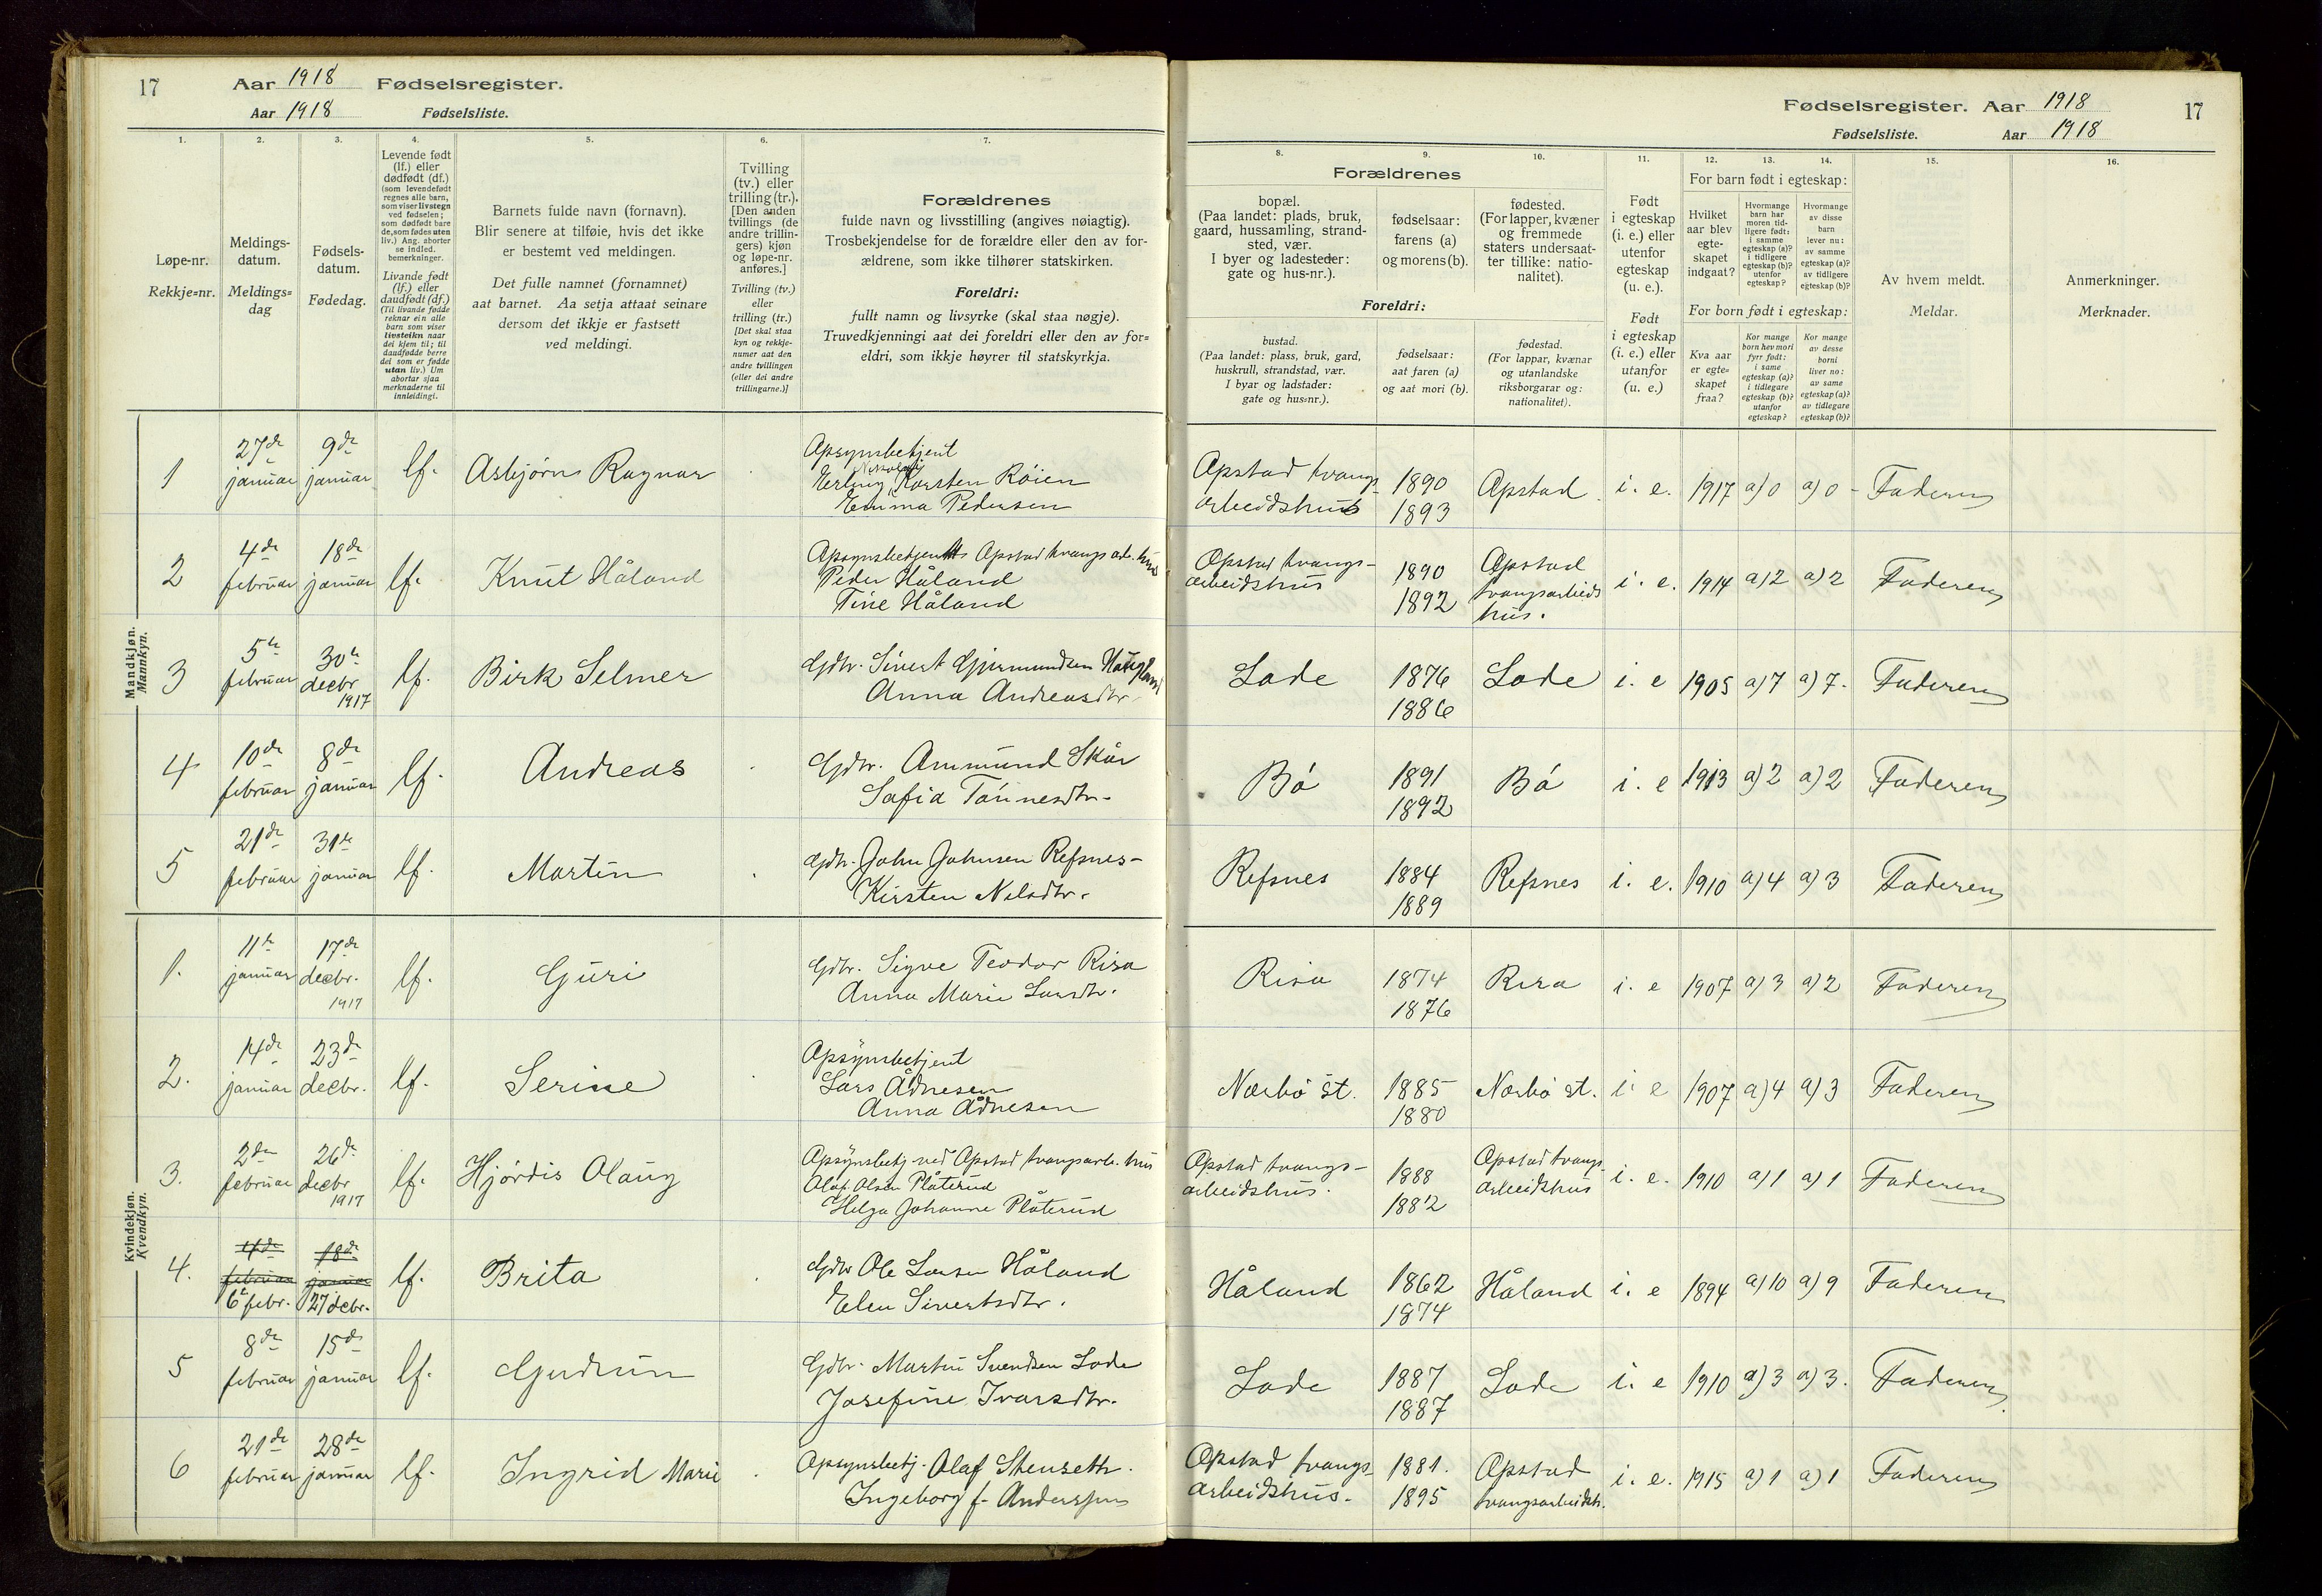 17 Aar 1918 Fødselsregister.
Aar 1918 Fødselsliste.
Fødselsregister. Aar 1918 17
Fødselsliste. Aar 1918
1. 2. 3. 4. 5. 6. 7.
Løpe-nr.
Rekkje=nr.
Meldings-
datum.
Meldings=
dag
Fødsels-
datum.
Fødedag.
Levende født
(lf.) eller
dødfødt (df.)
(som levendefødt
regnes alle barn,
som viser livstegn
ved fødselen;
som dødfødt bare
de, som fødes uten
liv.) Ang. aborter
se indled.
bemerkninger.
Livande født
(lf.) eller
daudfødt (df.)
(Til livande fødde
reknar ein alle
barn som viser
livsteikn naar
dei kjem til; til
daudfødde berre
dei som er fødde
utan liv.) Um
abortar sjaa
merknaderne til
innleidingi.
Barnets fulde navn (fornavn).
Blir senere at tilføie, hvis det ikke
er bestemt ved meldingen.
Det fulle namnet (fornamnet)
aat barnet. Aa setja attaat seinare
dersom det ikkje er fastsett
ved meldingi.
Tvilling
(tv.) eller
trilling (tr.).
[Den anden
tvillings (de
andre trillin-
gers) kjøn
og løpe-nr.
anføres.]
Tvilling (tv.)
eller
trilling (tr.)
[Det skal staa
kyn og rekkje-
numer aat den
andre tvillingen
(eller dei andre
trillingarne.)]
Forældrenes
fulde navn og livsstilling (angives nøiagtig).
Trosbekjendelse for de forældre eller den av for-
ældrene, som ikke tilhører statskirken.
Foreldri:
fullt namn og livsyrke (skal staa nøgje).
Truvedkjenningi aat dei foreldri eller den av for=
eldri, som ikkje høyrer til statskyrkja.
8. 9. 10. 11. 12. 13. 14. 15. 16.
Forældrenes
bopæl.
(Paa landet: plads, bruk,
gaard, hussamling, strand-
sted, vær.
I byer og ladesteder:
gate og hus-nr.).
fødselsaar:
farens (a)
og morens (b).
fødested.
(For lapper, kvæner
og fremmede
staters undersaat-
ter tillike: natio-
nalitet).
Foreldri:
bustad.
(Paa landet: plass, bruk, gard,
huskrull, strandstad, vær.
I byar og ladstader:
gate og hus=nr.).
fødselsaar:
aat faren (a)
og aat mori (b).
fødestad.
(For lappar, kvænar
og utanlandske
riksborgarar og:
nationalitet).
Født
i egteskap
(i. e.) eller
utenfor
egteskap
(u. e.).
Født
i egteskap
(i. e.) eller
utanfor
(u. e.)
For barn født i egteskap:
Hvilket
aar blev
egte-
skapet
indgaat?
Hvormange
barn har
moren tid-
ligere født:
i samme
egteskap (a)?
i tidligere
egteskap (b)?
utenfor
egteskap?
Hvormange
av disse
barn
lever nu:
av samme
egteskap (a)?
av tidligere
egteskap (b)?
For born født i egteskap:
Kva aar
er egte=
skapet
fraa?
Kor mange
born hev mori
fyrr født:
i same
egteskap (a)?
i tidlegare
egteskap (b)?
utanfor
egteskap?
Kor mange
av desse
borni
liver no:
av same
egteskap (a)?
av tidlegare
egteskap (b)?
Av hvem meldt.
Meldar.
Anmerkninger.
Merknader.
Mandkjøn.
Mannkyn.
1 27de januar 9de januar lf. Asbjørn Ragnar
Apsynsbetjent
Erling Karsten Röien
Emma Pedersen
Opstad tvangs-
arbeidshus 1890 1893 Opstad i. e. 1917 a) 0 a) 0 - Faderen
2 4de februar 18de januar lf. Knut Håland
Opsynsbetjent Opstad tvangsarb. hus
Peder Håland
Tine Håland
Opstad tvangs-
arbeidshus 1890 1892 Opstad tvangsarbeids hus. i. e. 1914 a) 2 a) 2 Faderen
3 5te februar 30te decbr 1917 lf. Birk Selmer
Gdbr. Sivert Gjermundsen Haugland
Anna Andreasdtr.
Lode 1876 1886 Lode i. e 1905 a) 7 a) 7. Faderen
4 10de februar 8de januar lf. Andreas
Gdbr. Ammund Skår
Sofia Tönnesdtr.
Bö 1891 1892 Bö i. e 1913 a) 2 a) 2 Faderen
5 21de februar 31te januar lf. Martin
Gdbr. John Johnsen Refsnes-
Kirsten Nilsdtr.
Refsnes 1884 1889 Refsnes i. e. 1910 a) 4 a) 3 Faderen
Kvindekjøn.
Kvendkyn.
1. 11te januar 17de decbr. 1917 lf. Guri
Gdbr. Sigve Teodor Risa
Anna Marie Larsdtr.
Risa 1874 1876 Risa i. e 1907 a) 3 a) 2 Faderen
2. 14de januar 23de decbr. lf. Serine
Opsynsbetjent
Lars Ådnesen
Anna Ådnesen
Nærbö st. 1885 1880 Nærbö st. i. e 1907 a) 4 a) 3 Faderen
3. 2den februar 26de decbr 1917 lf. Hjördis Olaug
Opsynsbetj. ved Opstad tvangsarb. hus
Olaf Olsen Plåterud
Helga Johanne Plåterud
Opstad tvangs-
arbeidshus. 1888 1882 Opstad tvangs-
arbeidshus i. e. 1910 a) 1 a) 1 Faderen
4. 4de februar 6te febr. 18de januar 27 decbr. lf. Brita
Gdbr Ole Larsen Håland
Elen Sivertsdtr.
Håland 1862 1874 Håland i. e 1894 a) 10 a) 9 Faderen
5 8de februar 15de januar lf. Gudrun
Gdbr. Martin Svendsen Lode
Josefine Ivarsdtr.
Lode 1887 1887 Lode i. e 1910 a) 3 a) 3. Faderen
6 21de februar 28de januar lf. Ingrid Marie
Opsynsbetj. Olaf Stenseth.
Ingeborg f. Anderssen
Opstad tvangs-
arbeidshus. 1881. 1895 Opstad tvangsarbeidsh. i. e. 1915 a) 1 a) 1 Faderen